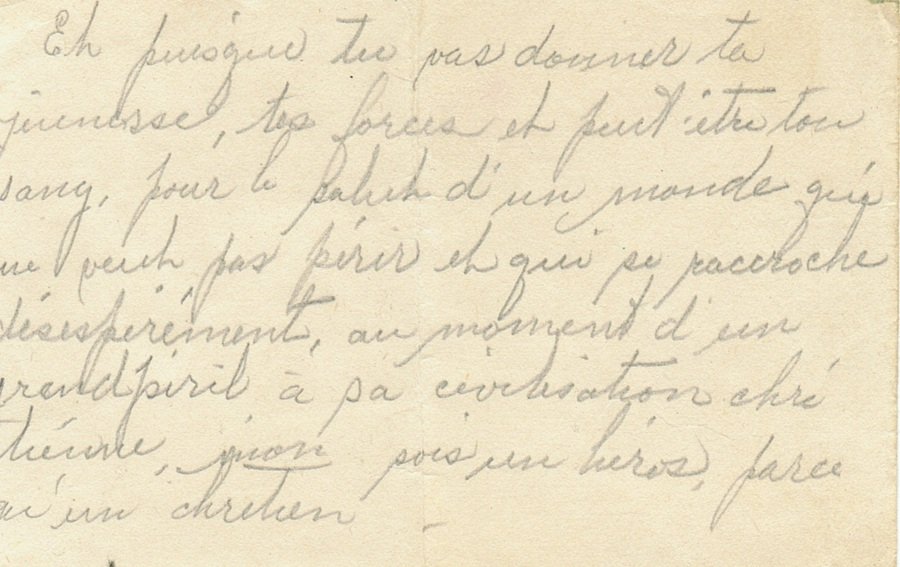 Eh puisque tu vas donner ta
jeunesse, tes forces et peut-être ton
sang, pour le salut d'un monde qui
ne veut pas périr et qui se raccroche
désespérément, au moment d'un
grand péril à sa civilisation chré
tiénne, sois un héros, parce
qu'un chretien